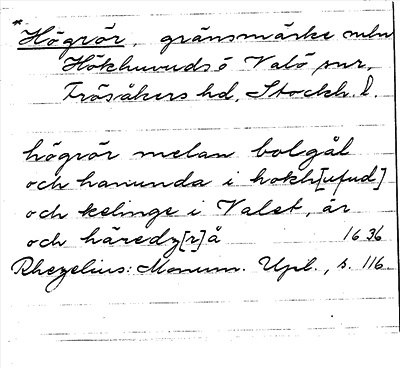 *Högrör, gränsmärke mln
Hökhuvuds o Valö snr,
Frösåkers hd, Stockh. l.
högrör melan bolgål
och hanunda i hokh[ufud]
och kelinge i Valet, är
och häredz[r]å 1636
Rhezelius: Monum. Upl., s. 116.